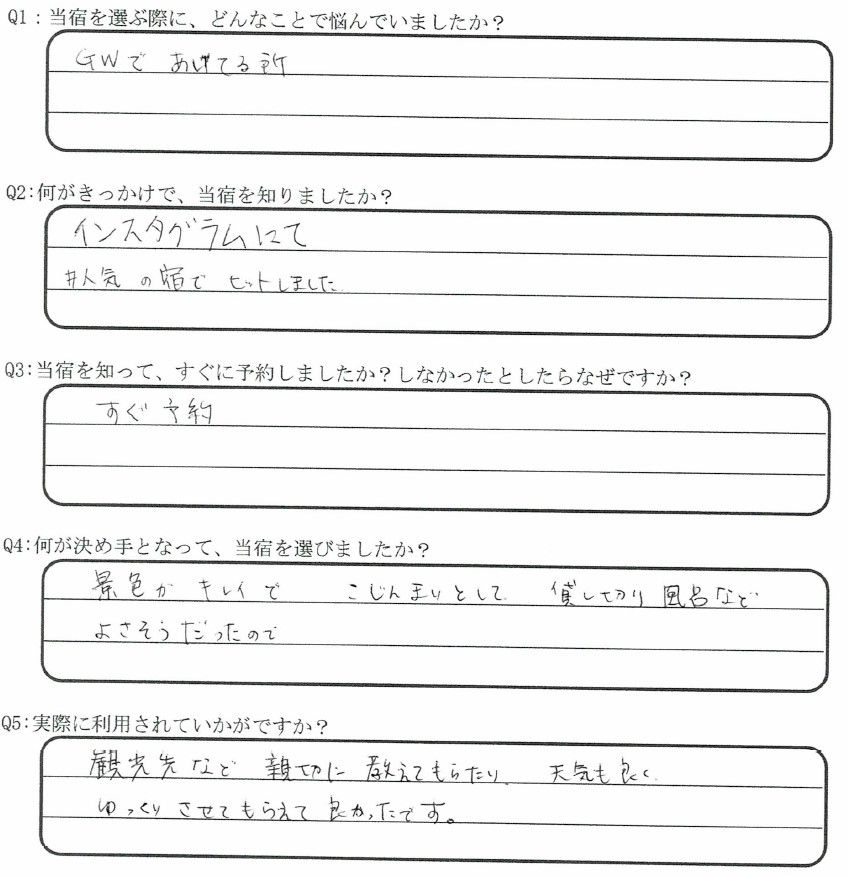 Q1：当宿を選ぶ際に、どんなことで悩んでいましたか？
GWで あいてる所
Q2：何がきっかけで、当宿を知りましたか？
インスタグラムにて
#人気の宿で ヒットしました。
Q3：当宿を知って、すぐに予約しましたか？しなかったとしたらなぜですか？
すぐ予約
Q4：何が決め手となって、当宿を選びましたか？
景色が キレイで こじんまりとして、貸し切り風呂など
よさそうだったので
Q5：実際に利用されていかがですか？
観光先など 親切に 教えてもらたり、天気も良く、
ゆっくりさせてもらえて良かったです。